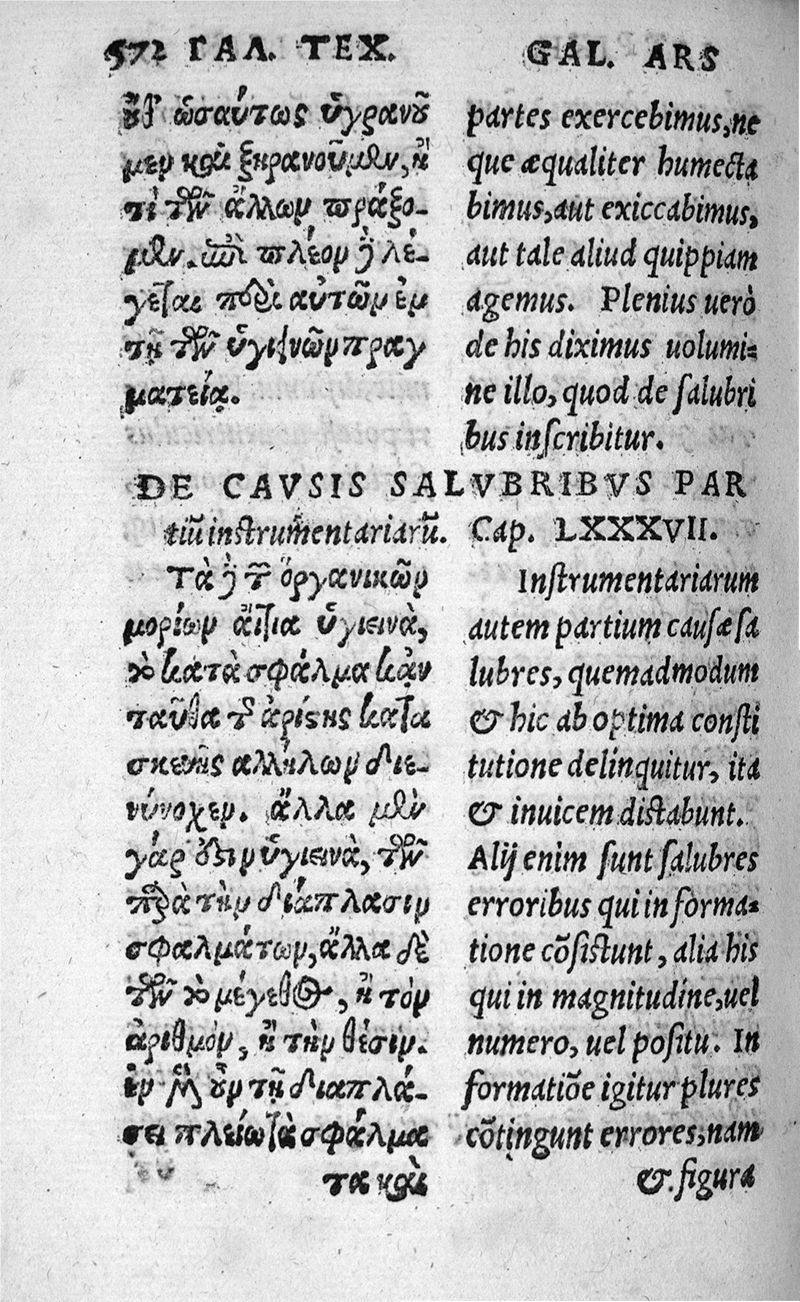 572 ΓΑΛ. ΤΕΧ.
ὡσαύτως ὑγρανοῦ
μεν καὶ ξηρανοῦμεν, ἤ
τι τῶν ἄλλων πράξο-
μεν. ἐπὶ πλέον δὲ λέ-
γεται περὶ αὐτῶν ἐν
τῇ τῶν ὑγιεινῶν πραγ
ματείᾳ.
GAL. ARS
partes exercebimus, ne
que æqualiter humecta
bimus, aut exiccabimus,
aut tale aliud quippiam
agemus. Plenius uerò
de his diximus uolumi-
ne illo, quod de ſalubri
bus inſcribitur.
DE CAVSIS SALVBRIBVS PAR
tiũ inſtrumentariarũ. Cap. LXXXVII.
Τὰ δὲ τῶν ὀργανικῶν
μορίων αἴτια ὑγιεινὰ,
κατὰ σφάλμα κἀν
ταῦθα τῆς ἀρίστης κατα
σκευῆς ἀλλήλων διε-
νήνοχεν. ἄλλα μὲν
γάρ ὑγιεινὰ, τῶν
παρὰ τὴν διάπλασιν
σφαλμάτων, ἄλλα δὲ
τῶν κατὰ μέγεθος, ἢ τὸν
ἀριθμὸν, ἢ τὴν θέσιν.
ἐν μὲν οὖν τῇ διαπλά-
σει πλείω τὰ σφάλμα
τα καὶ
Inſtrumentariarum
autem partium cauſæ ſa
lubres, quemadmodum
& hic ab optima conſti
tutione delinquitur, ita
& inuicem diſtabunt.
Alij enim ſunt ſalubres
erroribus qui in forma-
tione cõſiſtunt, alia his
qui in magnitudine, uel
numero, uel poſitu. In
formatiõe igitur plures
cõtingunt errores, nam
& figura